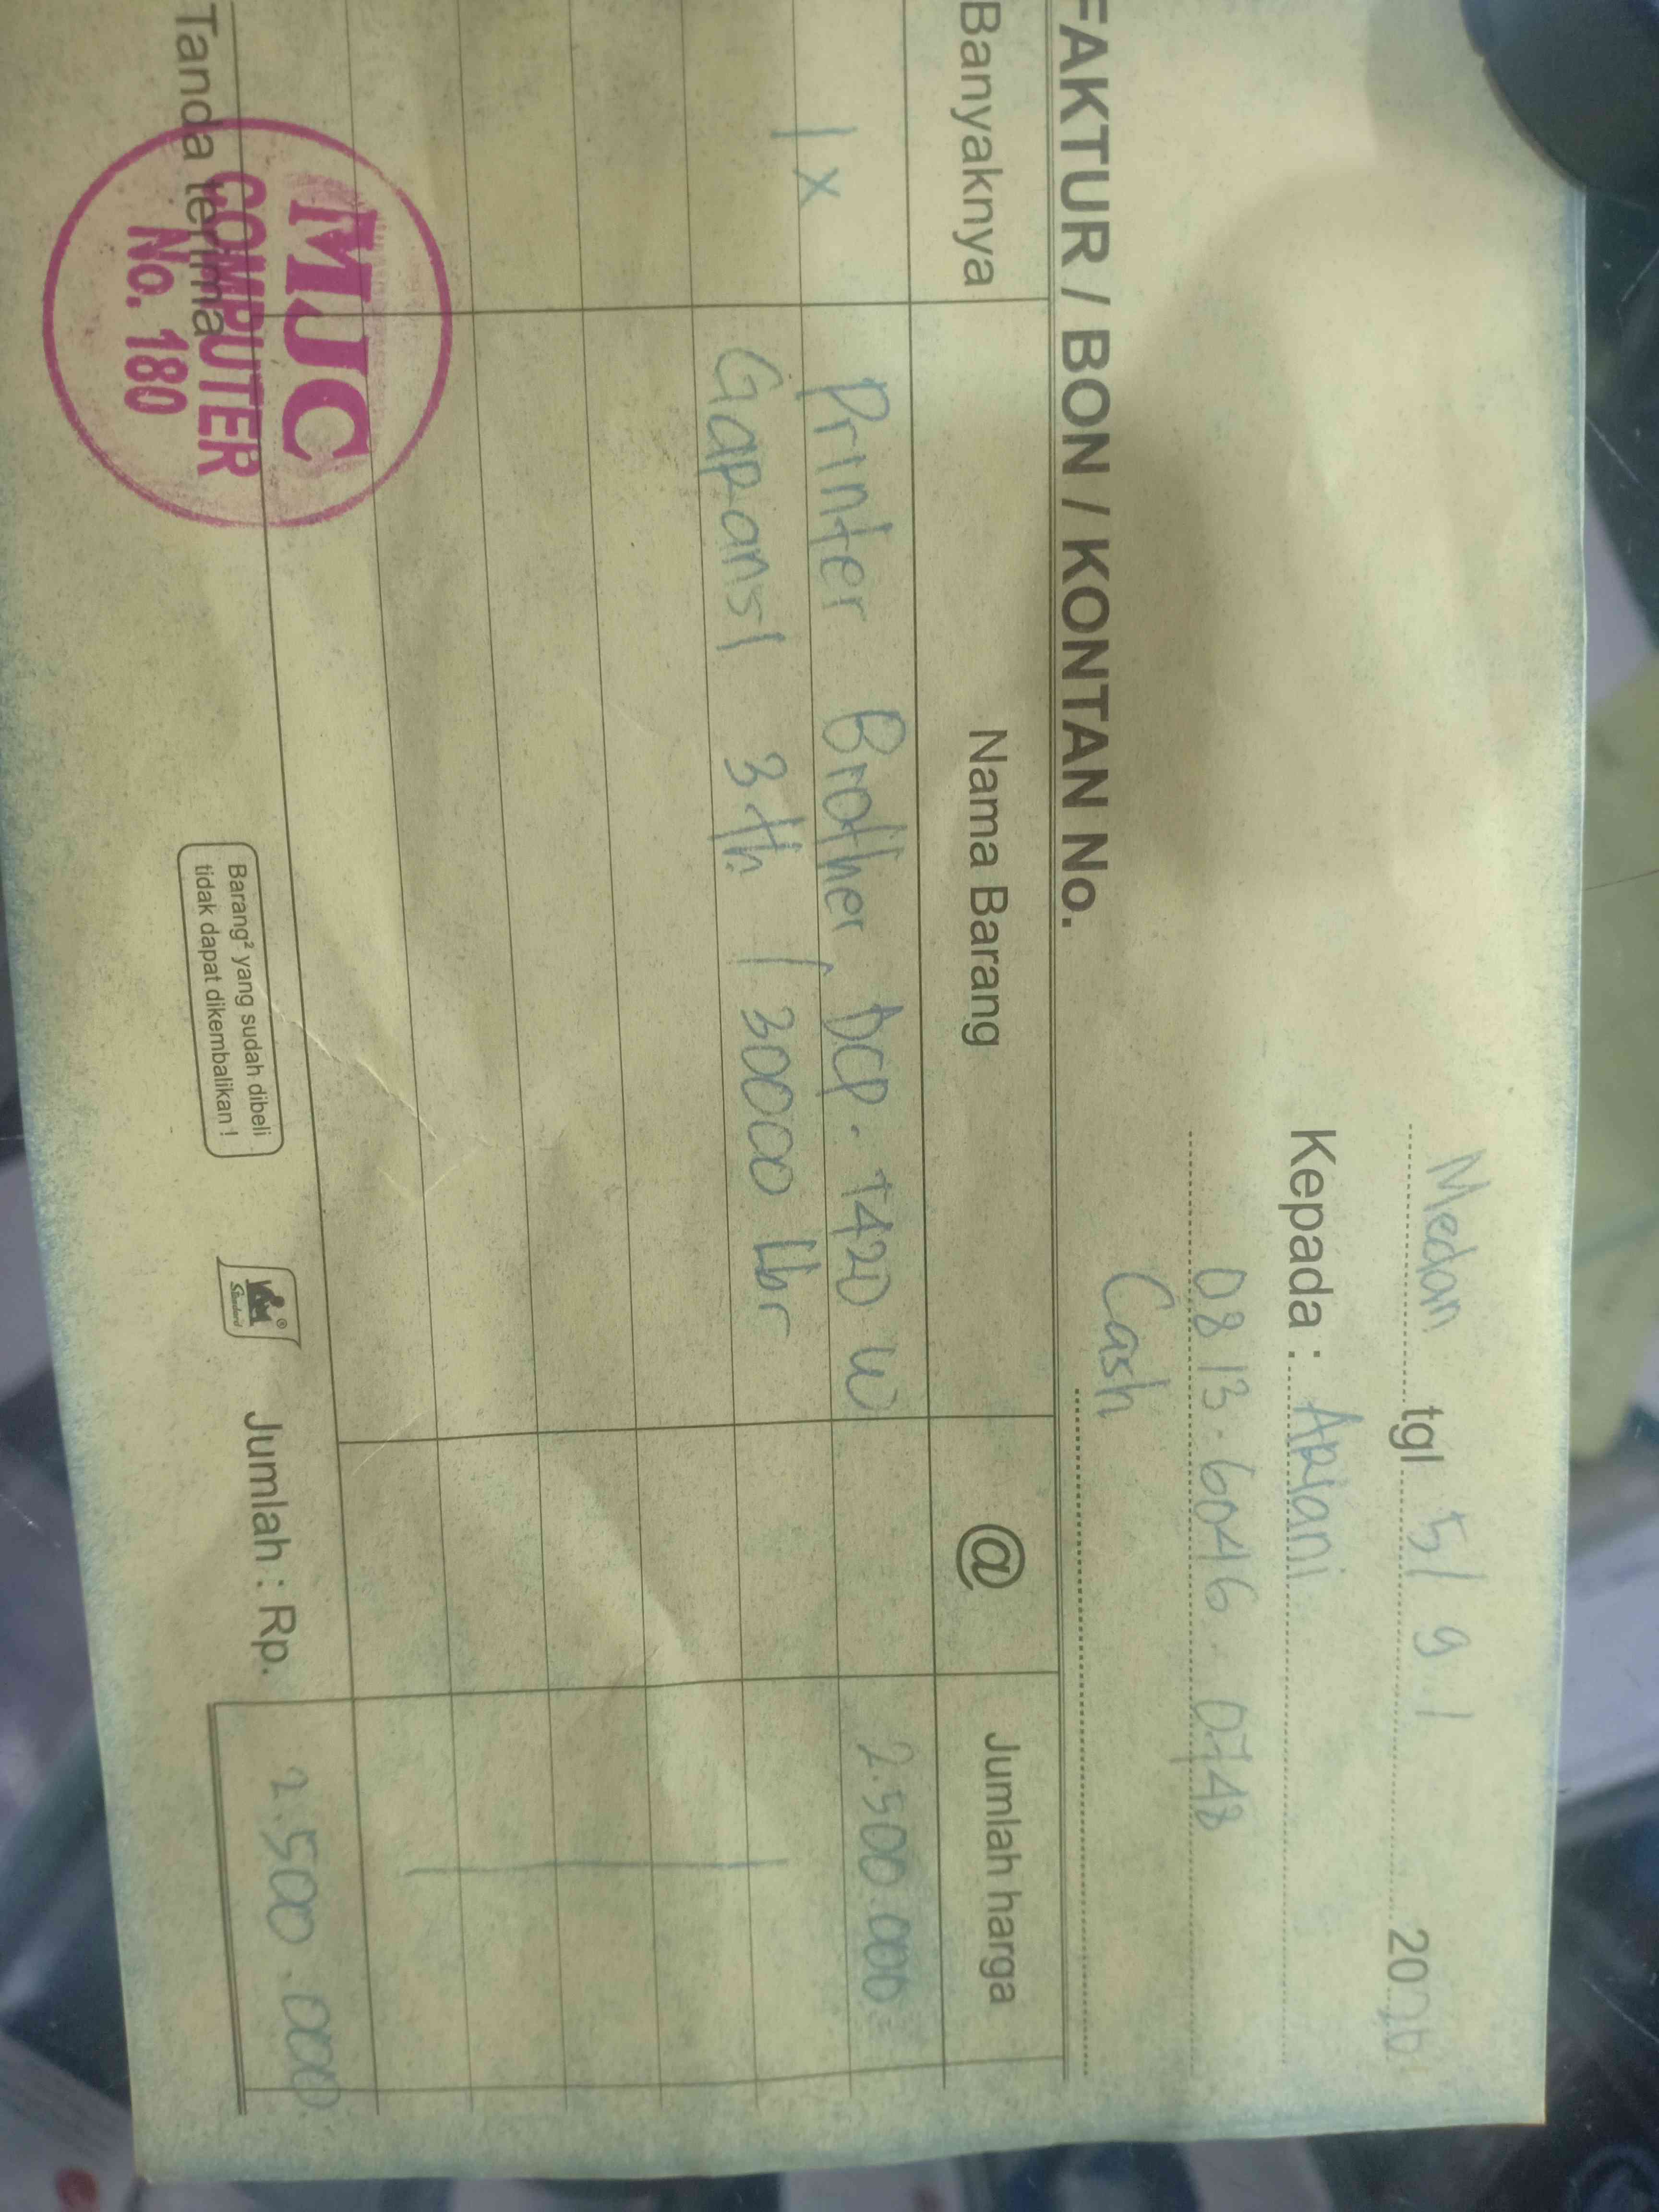 Medan tgl 5/ 9.1 2026
Kepada : Ariani
0813.6046.0748
Cash
FAKTUR / BON / KONTAN No.
Banyaknya Nama Barang @ Jumlah harga
1 x Printer Brother DCP. T420 W 2.500.000
Garansi 3 th / 30000 Lbr
Tanda terima
MJC
COMPUTER
No. 180
Barang² yang sudah dibeli
tidak dapat dikembalikan !
Standard
Jumlah : Rp. 2.500.000